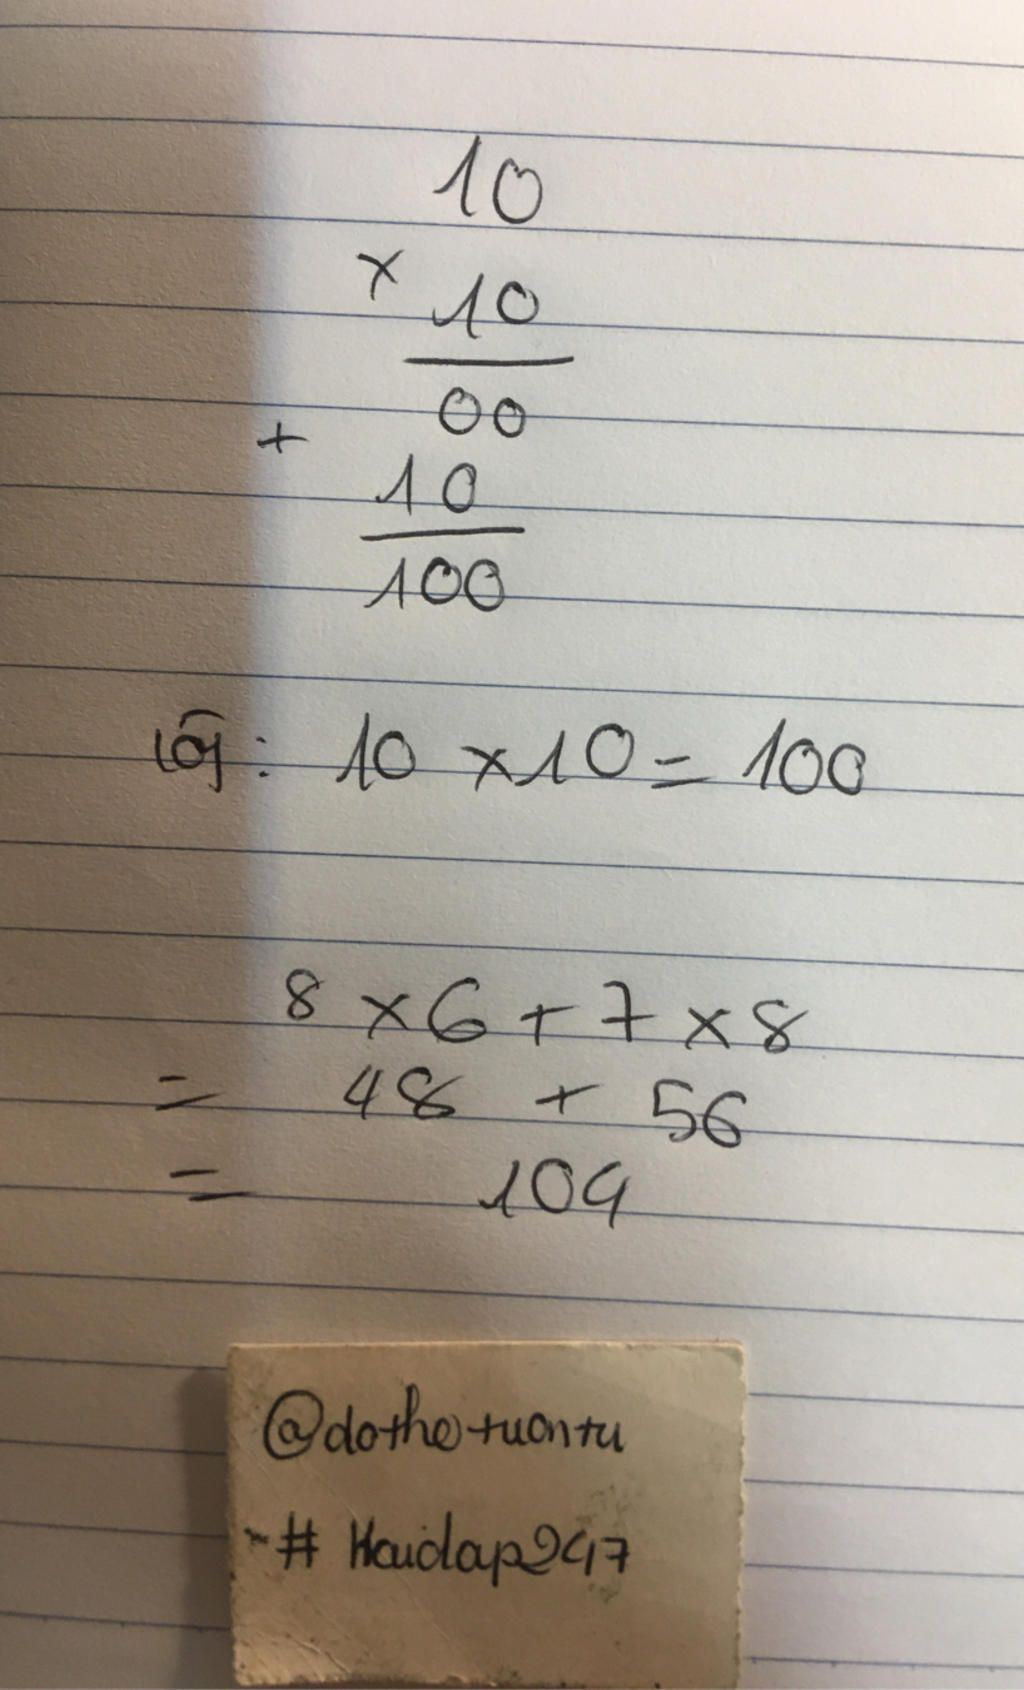 10
× 10
00
+
10
100
: 10 × 10 = 100
8 × 6 + 7 × 8
= 48 + 56
= 104
@dothetuantu
# Hoidap247